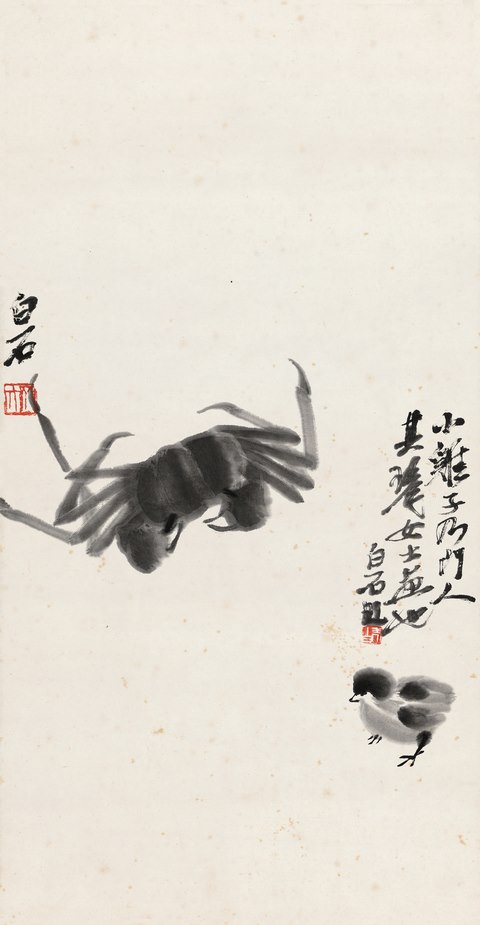 小雞子乃門人
其女士画也
白石
白石